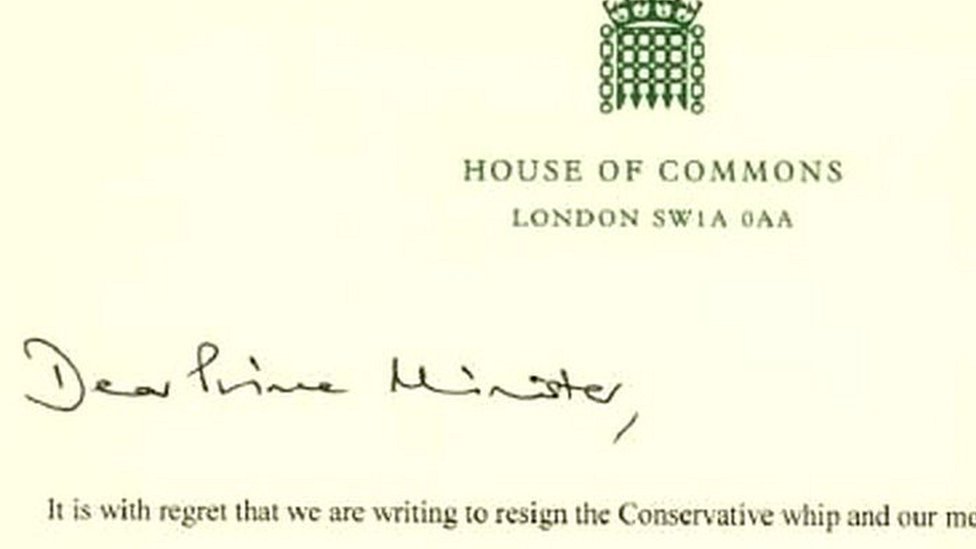 HOUSE OF COMMONS
LONDON SW1A 0AA
Dear Prime Minister,
It is with regret that we are writing to resign the Conservative whip and our